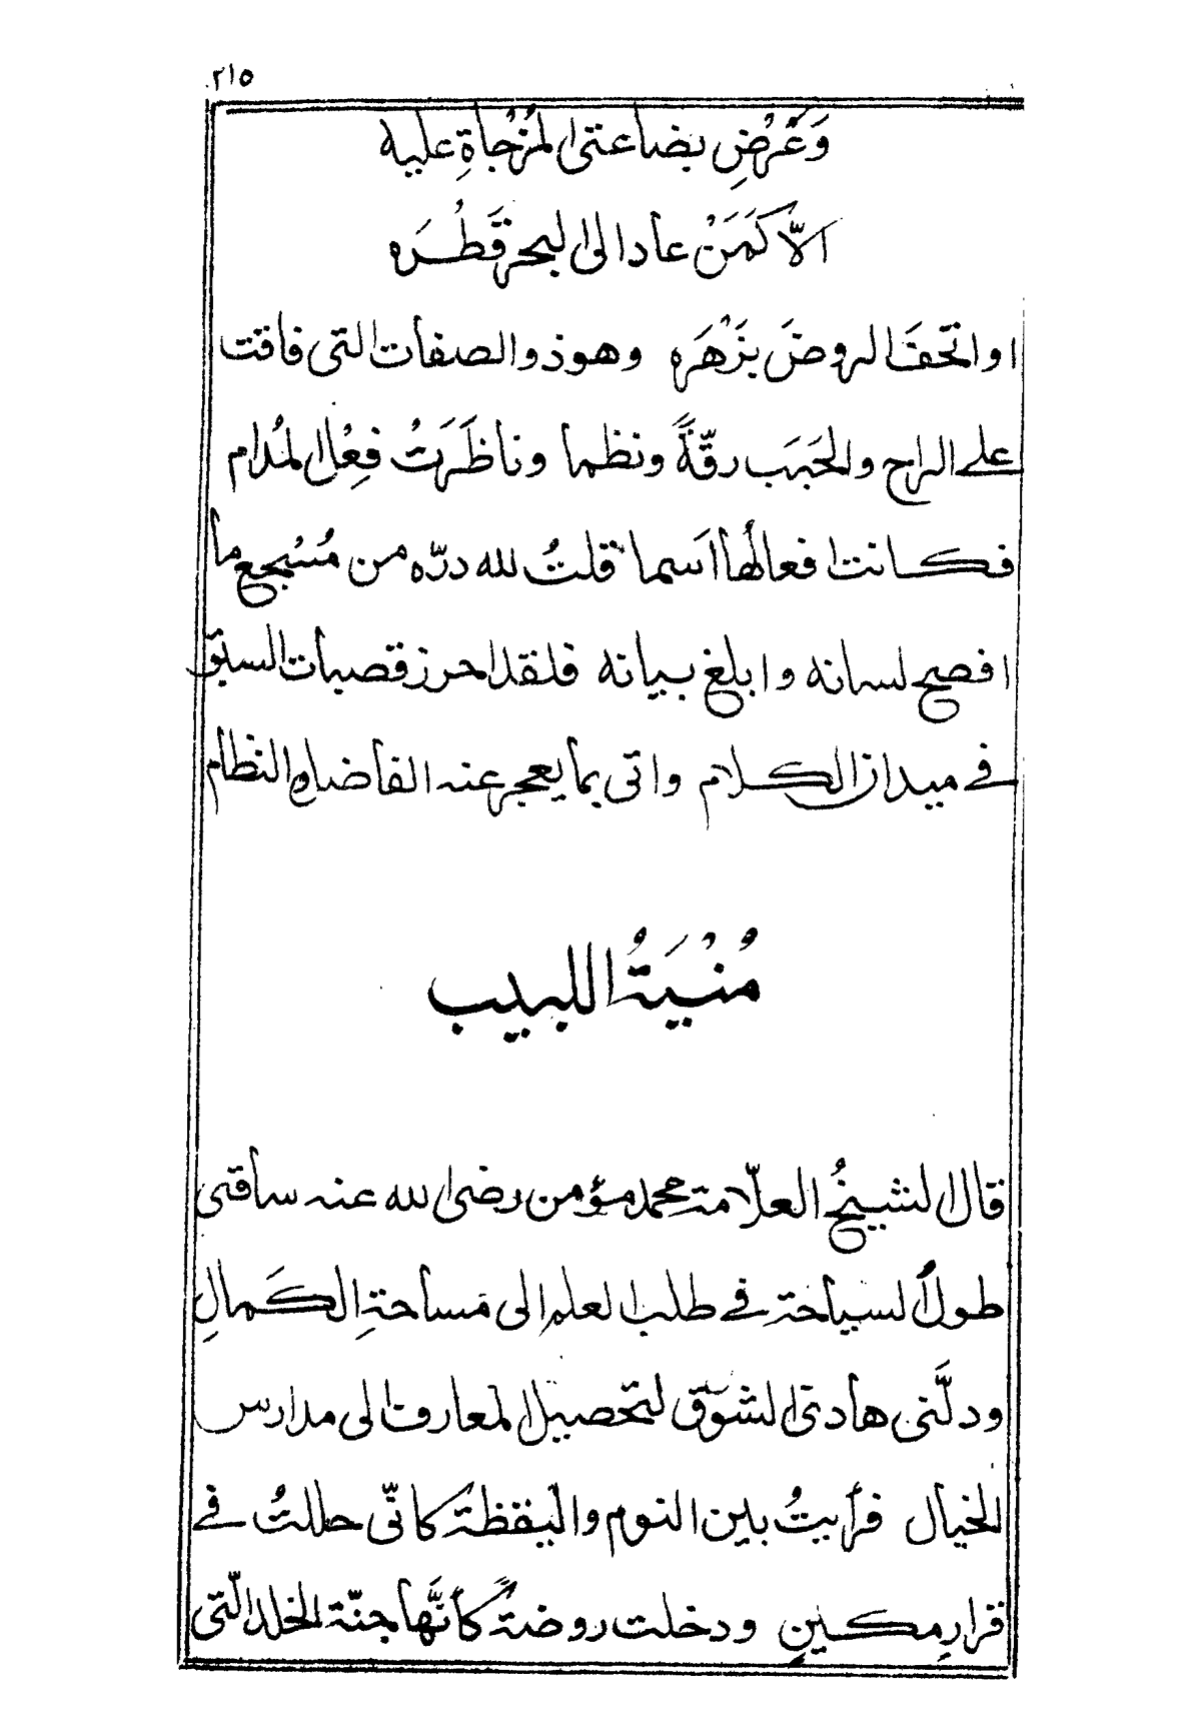 ٢١٥
وَعَرْضِ بضاعتى المُزْجاةِ عليه
الّا كَمَنْ عاد الى البحر قَطْرَه
او اتحفَ الروضَ بزَهْرَه وهو ذو الصفات التى فاقت
على الراح والحَبَب رقّةً ونظما وناظَرَتْ فِعْل المُدام
فكانت افعالُها اَسما قلتُ لله درّه من مُسْجع ما
افصح لسانه وابلغ بيانه فلقد احرز قصبات السبق
فى ميدان الكلام واتى بما يعجز عنه الفاضل والنظام
مُنْيَةُ اللبيب
قال الشيخُ العلّامة محمد مؤمن رضى الله عنه ساقنى
طولُ السياحة فى طلب العلم الى مَساحةِ الكَمالِ
ودلَّنى هادى الشوق لتحصيل المعارف الى مدارس
الخيال فرأيتُ بين النوم واليقظة كانّى حللتُ فى
قرارِ مكينٍ ودخلت روضةً كأنَّها جنّة الخلد الّتى